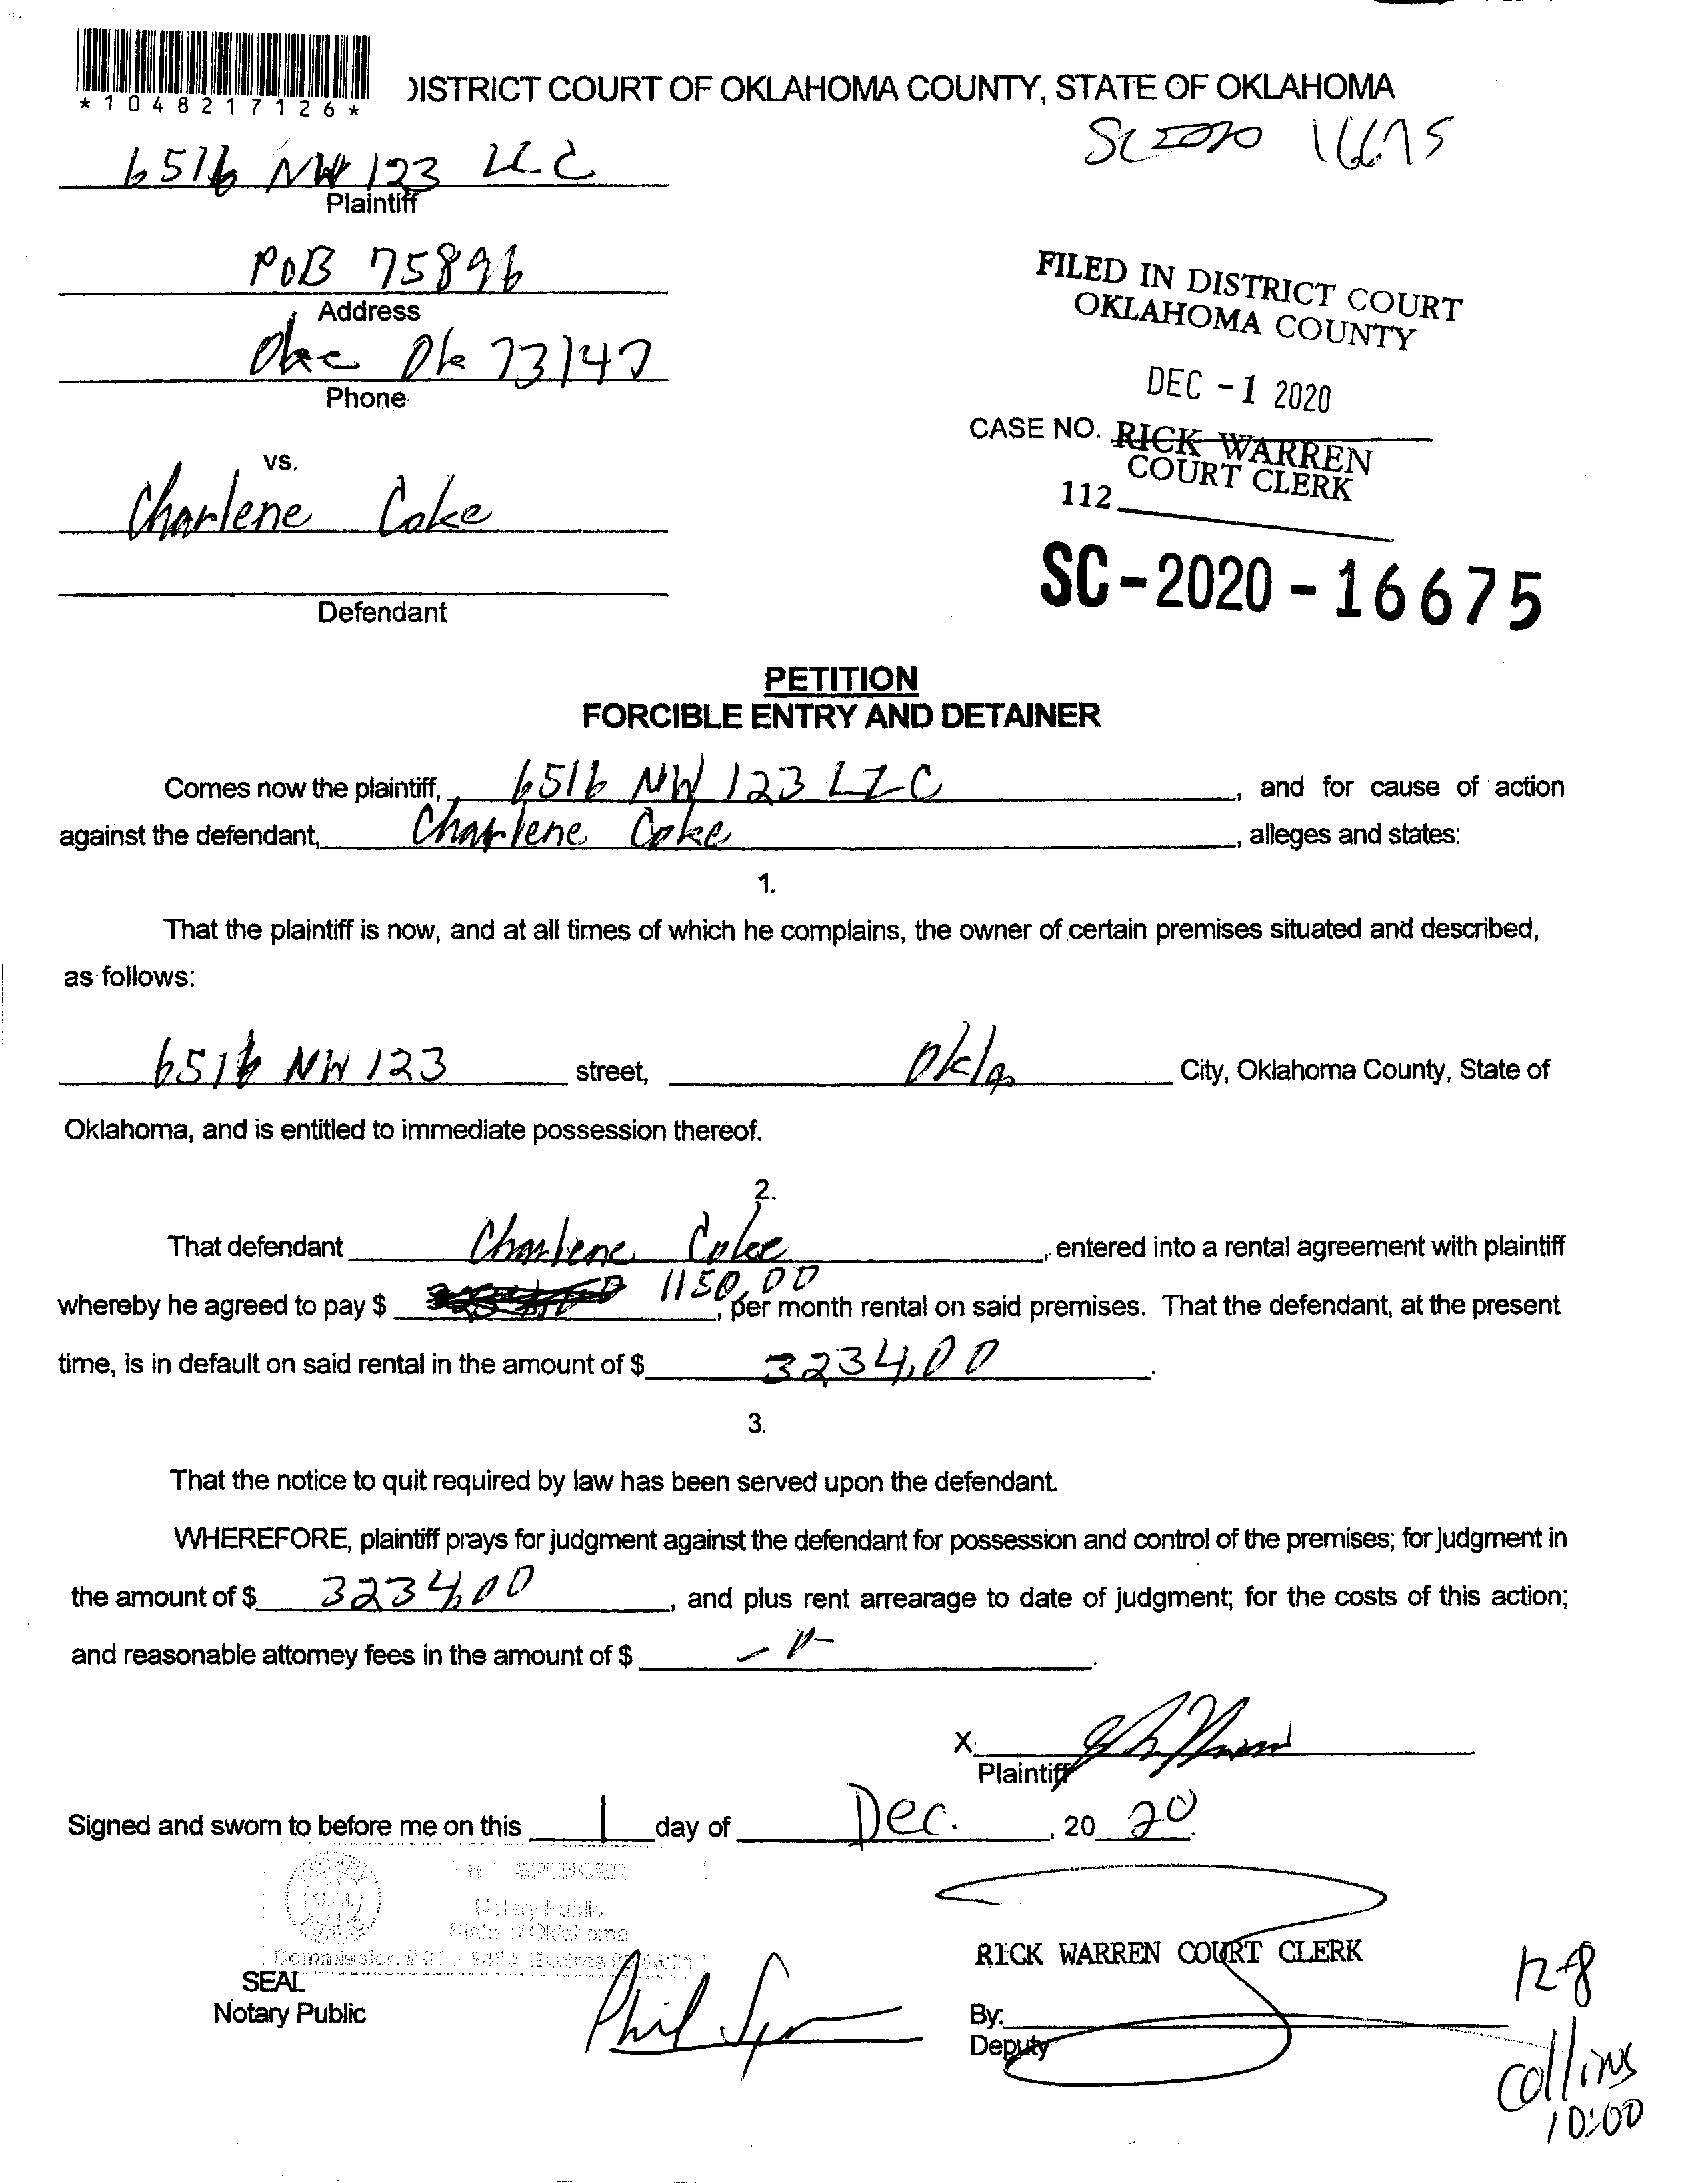 *1048217126*
DISTRICT COURT OF OKLAHOMA COUNTY, STATE OF OKLAHOMA
SC 2020 16675
6516 NW 123 LLC
Plaintiff
POB 75896
Address
Okc Ok 73147
Phone
FILED IN DISTRICT COURT
OKLAHOMA COUNTY
DEC -1 2020
CASE NO. RICK WARREN
COURT CLERK
112
vs.
Charlene Coke
Defendant
SC-2020-16675
PETITION
FORCIBLE ENTRY AND DETAINER
Comes now the plaintiff, 6516 NW 123 LLC, and for cause of action
against the defendant, Charlene Coke, alleges and states:
1.
That the plaintiff is now, and at all times of which he complains, the owner of certain premises situated and described,
as follows:
6516 NW 123 street, Okla City, Oklahoma County, State of
Oklahoma, and is entitled to immediate possession thereof.
2.
That defendant Charlene Coke, entered into a rental agreement with plaintiff
whereby he agreed to pay $ 1150.00, per month rental on said premises. That the defendant, at the present
time, is in default on said rental in the amount of $ 3234.00.
3.
That the notice to quit required by law has been served upon the defendant.
WHEREFORE, plaintiff prays for judgment against the defendant for possession and control of the premises; for judgment in
the amount of $ 3234.00, and plus rent arrearage to date of judgment; for the costs of this action;
and reasonable attorney fees in the amount of $ -0-.
X
Plaintiff
Signed and sworn to before me on this 1 day of Dec., 20 20.
Notary Public
State of Oklahoma
SEAL
Notary Public
Phil
RICK WARREN COURT CLERK
By:
Deputy
12-8
Collins
10:00